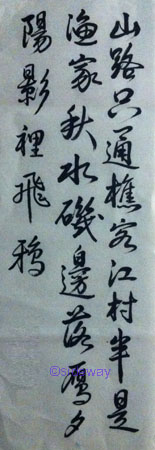 山路只通樵客江村半是
渔家秋水磯邊落雁夕
陽影裡飛鴉
©Sheway